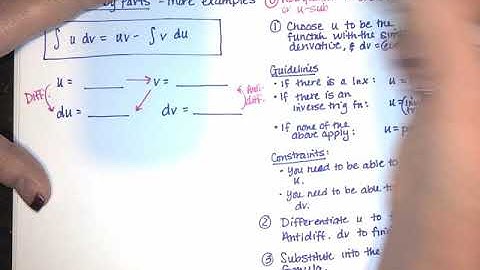 by parts - more examples
∫ u dv = uv - ∫ v du
u = ____ v = ____
Diff. Anti-diff.
du = ____ dv = ____
or u-sub
① Choose u to be the
function with the
derivative, & dv =
Guidelines
• If there is a lnx: u =
• If there is an
inverse trig fn: u =
• If none of the
above apply: u =
Constraints:
• You need to be able to
u.
• You need to be able to
dv.
② Differentiate u to
Antidiff. dv to
③ Substitute into the
formula.